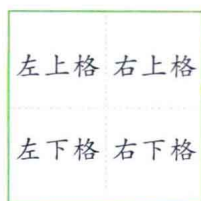 左上格 右上格
左下格 右下格